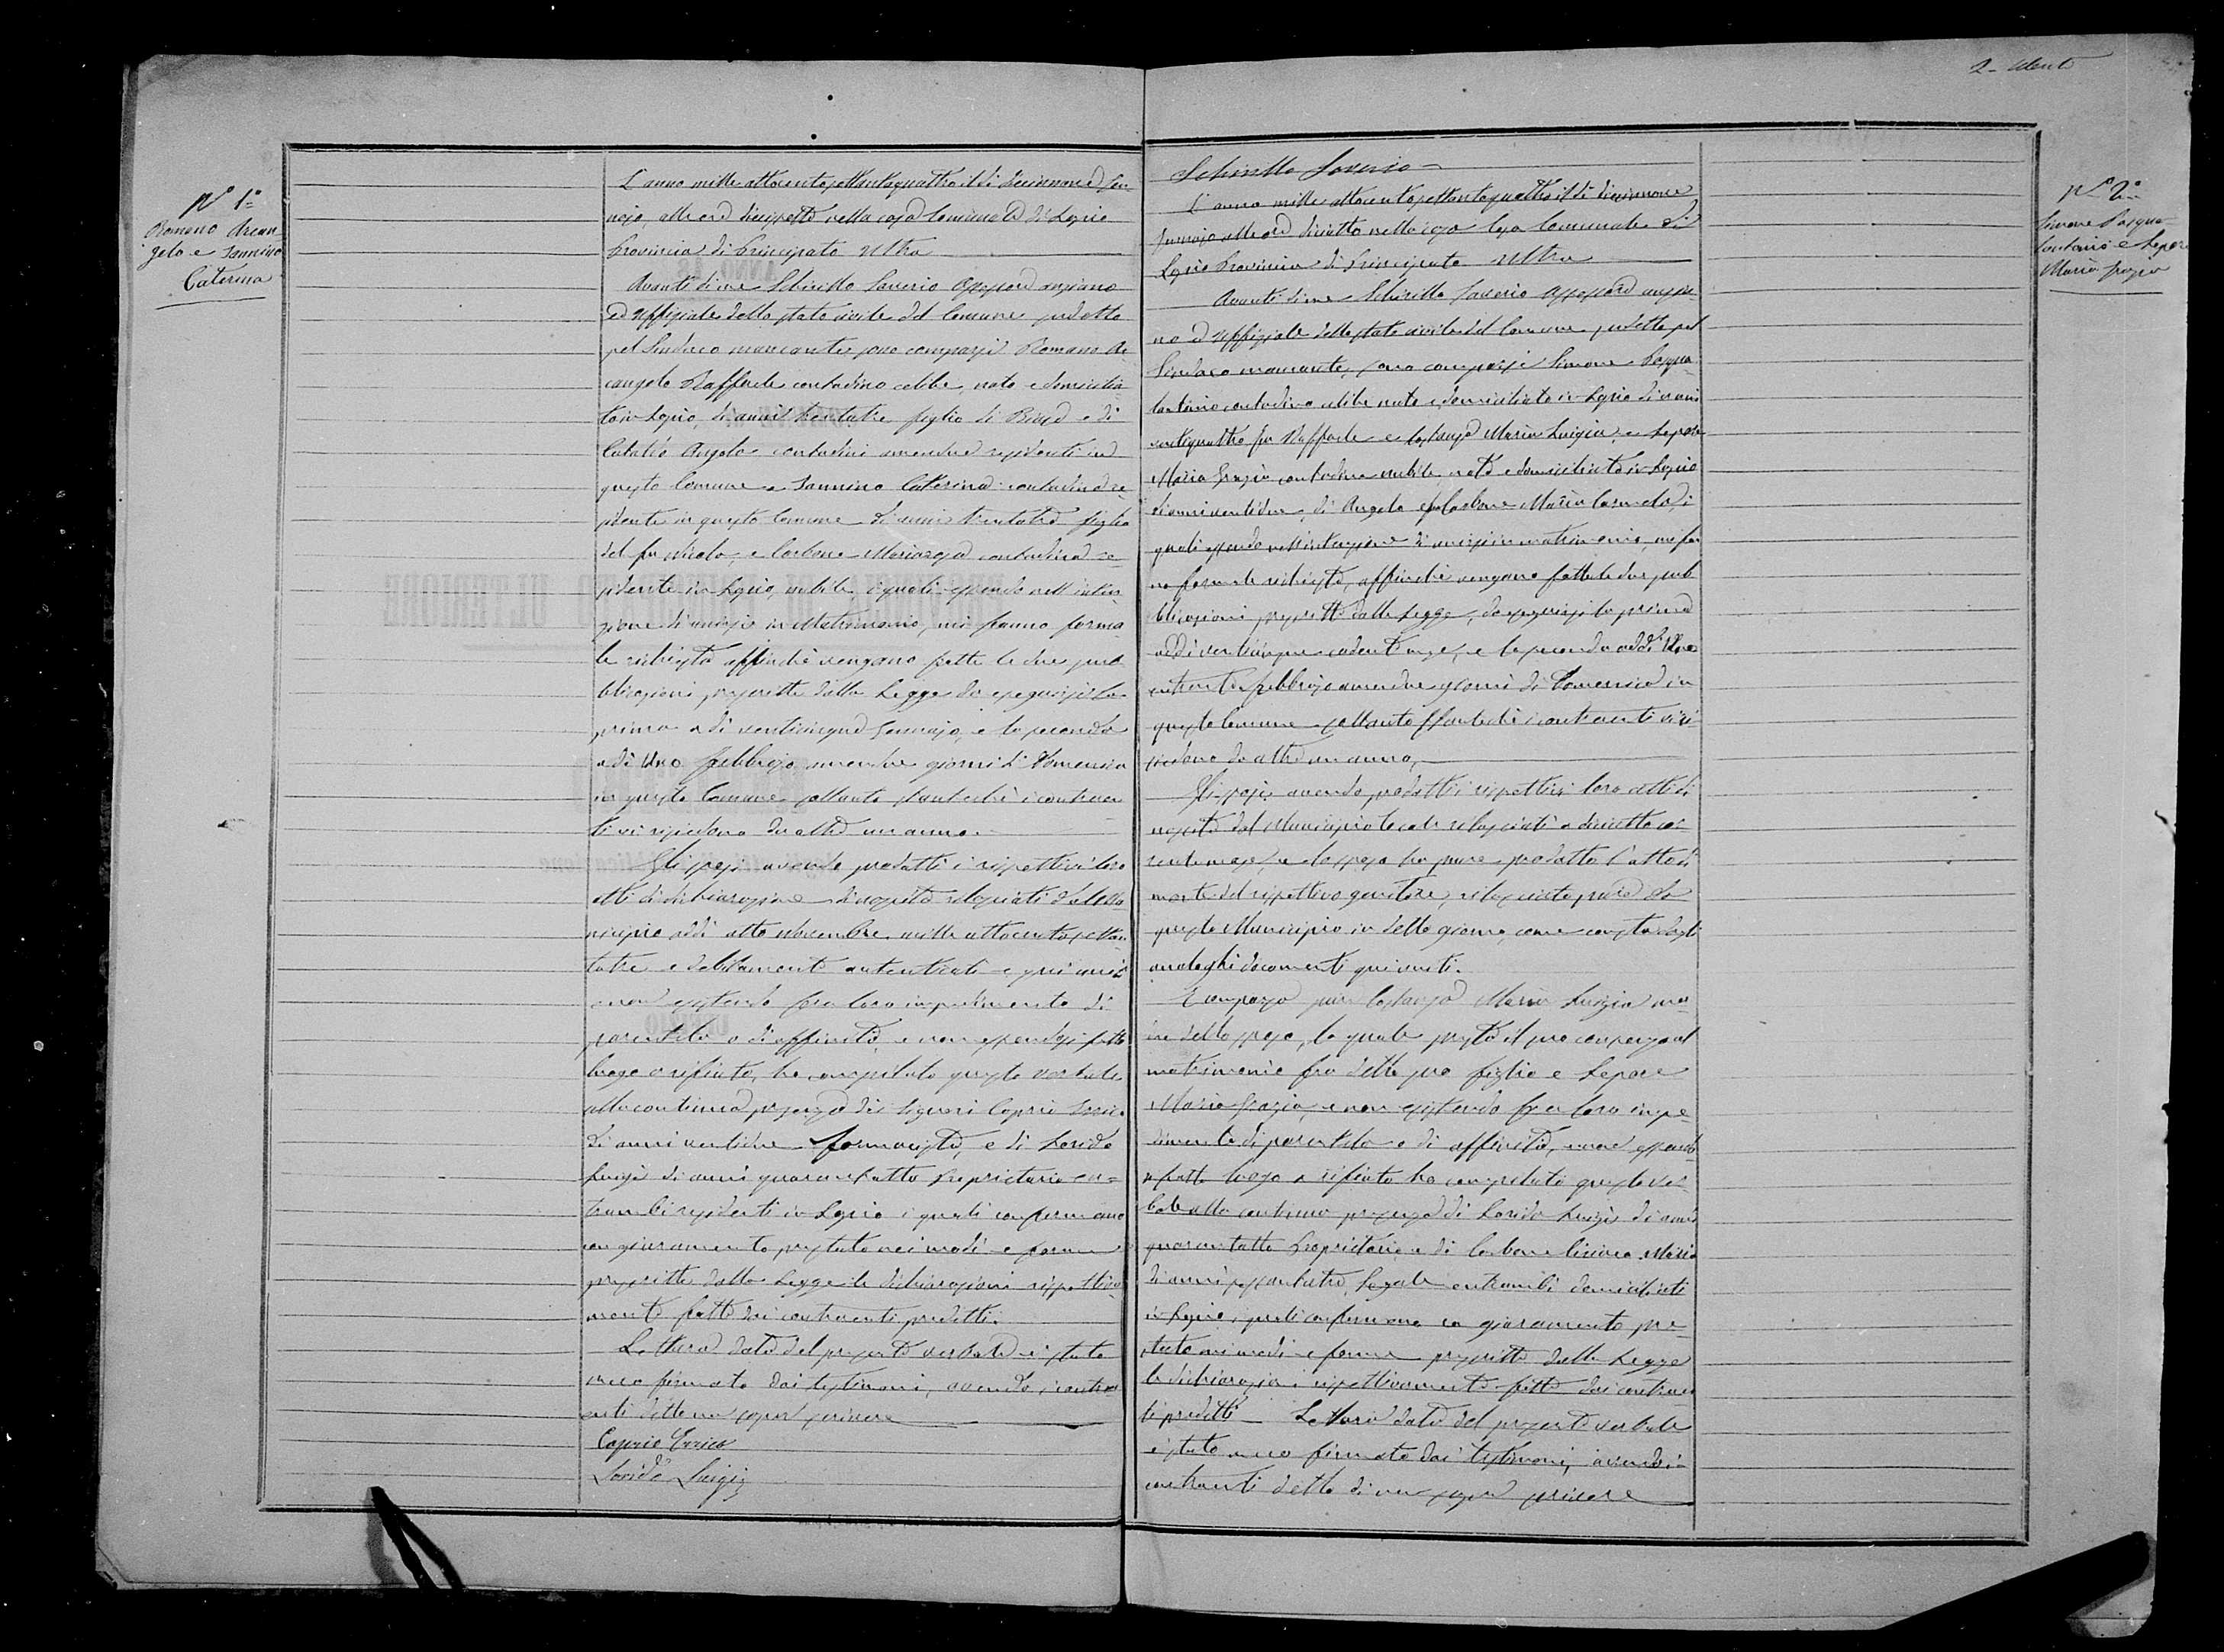 2-
Nº 1º
Romano Arcan
gelo e Iannino
Caterina
L'anno mille ottocento settantaquattro il dì diciannove Gen
najo, alle ore diciasette nella casa Comunale di Lapio
Provincia di Principato Ultra
Avanti di me Schirillo Saverio Assessore anziano
ed uffiziale dello stato civile del Comune sudetto
pel Sindaco mancante, sono comparsi Romano Ar
cangelo Raffaele contadino celibe, nato e domicilia
to in Lapio, di anni trentatre figlio di e di
Cataldo Angela contadini amendue residenti in
questo Comune e Iannino Caterina contadina re
sidente in questo Comune di anni figlia
del fu Nicola, e Carbone Mariarosa contadina re
sidente in Lapio, nubile, i quali essendo nell'inten
zione di unirsi in Matrimonio, mi fanno forma
le richiesta affinchè vengano fatte le due pub
blicazioni prescritte dalla Legge da eseguirsi la
prima a dì venticinque Gennajo, e la seconda
a dì Uno febbrajo amendue giorni di Domenica
in questo Comune soltanto stantechè i contraen
ti vi risiedono da oltre un anno.
Gli sposi avendo prodotti i rispettivi loro
atti di dichiarazione di nascita rilasciati dal Mu
nicipio addì otto Novembre mille ottocento settan
tatre e debitamente autenticati e qui uniti
e non esistendo fra loro impedimento di
parentela o di affinità, e non essendosi fatto
luogo a rifiuto, ho compilato questo verbale
alla continua presenza dei Signori Caprio Errico
di anni ventidue farmacista, e di Lorido
Luigi di anni quarantotto Proprietario en=
trambi residenti in Lapio i quali confermano
con giuramento prestato nei modi e forme
prescritte dalla Legge le dichiarazioni rispettiva
mente fatte dai contraenti predetti.
Lettura data del presente verbale è stato
meco firmato dai testimoni, avendo i contra
enti detto non saper scrivere
Caprio Errico
Lorido Luigi
Schirillo Saverio
L'anno mille ottocento settantaquattro il dì diciannove
Gennajo alle ore diciotto nella casa Comunale di
Lapio Provincia di Principato Ultra
Avanti di me Schirillo Saverio Assessore anzia
no ed uffiziale dello stato civile del Comune sudetto pel
Sindaco mancante, sono comparsi Simone Pasqua
lantonio contadino celibe nato e domiciliato in Lapio di anni
ventiquattro fu Raffaele e Costanza Maria Luigia, e Lepore
Maria Grazia contadina nubile nata e domiciliata in Lapio
di anni ventidue, di Angelo e Carbone Maria Carmela, i
quali essendo nell'intenzione di unirsi in matrimonio, mi fan
no formale richiesta, affinchè vengano fatte le due pub
blicazioni prescritte dalla Legge, da eseguirsi la prima
addì venticinque andante mese, e la seconda addì Uno
entrante febbrajo amendue giorni di Domenica in
questo Comune soltanto stantechè i contraenti vi ri
siedono da oltre un anno,
Gli sposi avendo prodotti i rispettivi loro atti di
nascita dal Municipio locale rilasciati a diciotto cor
rente mese, e la sposa ha pure prodotto l'atto di
morte del rispettivo genitore, rilasciato pure da
questo Municipio in detto giorno, come consta dagli
analoghi documenti qui uniti.
È comparsa pure Costanza Maria Luigia ma
dre dello sposo, la quale presta il suo consenso al
matrimonio fra detto suo figlio e Lepore
Maria Grazia, e non esistendo fra loro impe
dimento di parentela o di affinità, e non essendo
si fatto luogo a rifiuto ho compilato questo ver
bale alla continua presenza di Lorido Luigi di anni
quarantotto Proprietario e di Carbone Maria
di anni sessantatre, Legale entrambi domiciliati
in Lapio, i quali confermano con giuramento pre
stato nei modi e forme prescritte dalla Legge
le dichiarazioni rispettivamente fatte dai contraen
ti predetti Lettura data del presente verbale
è stato meco firmato dai testimoni, avendo i
contraenti detto di non saper scrivere
Nº 2º
Simone Pasqua
lantonio e Lepore
Maria Grazia